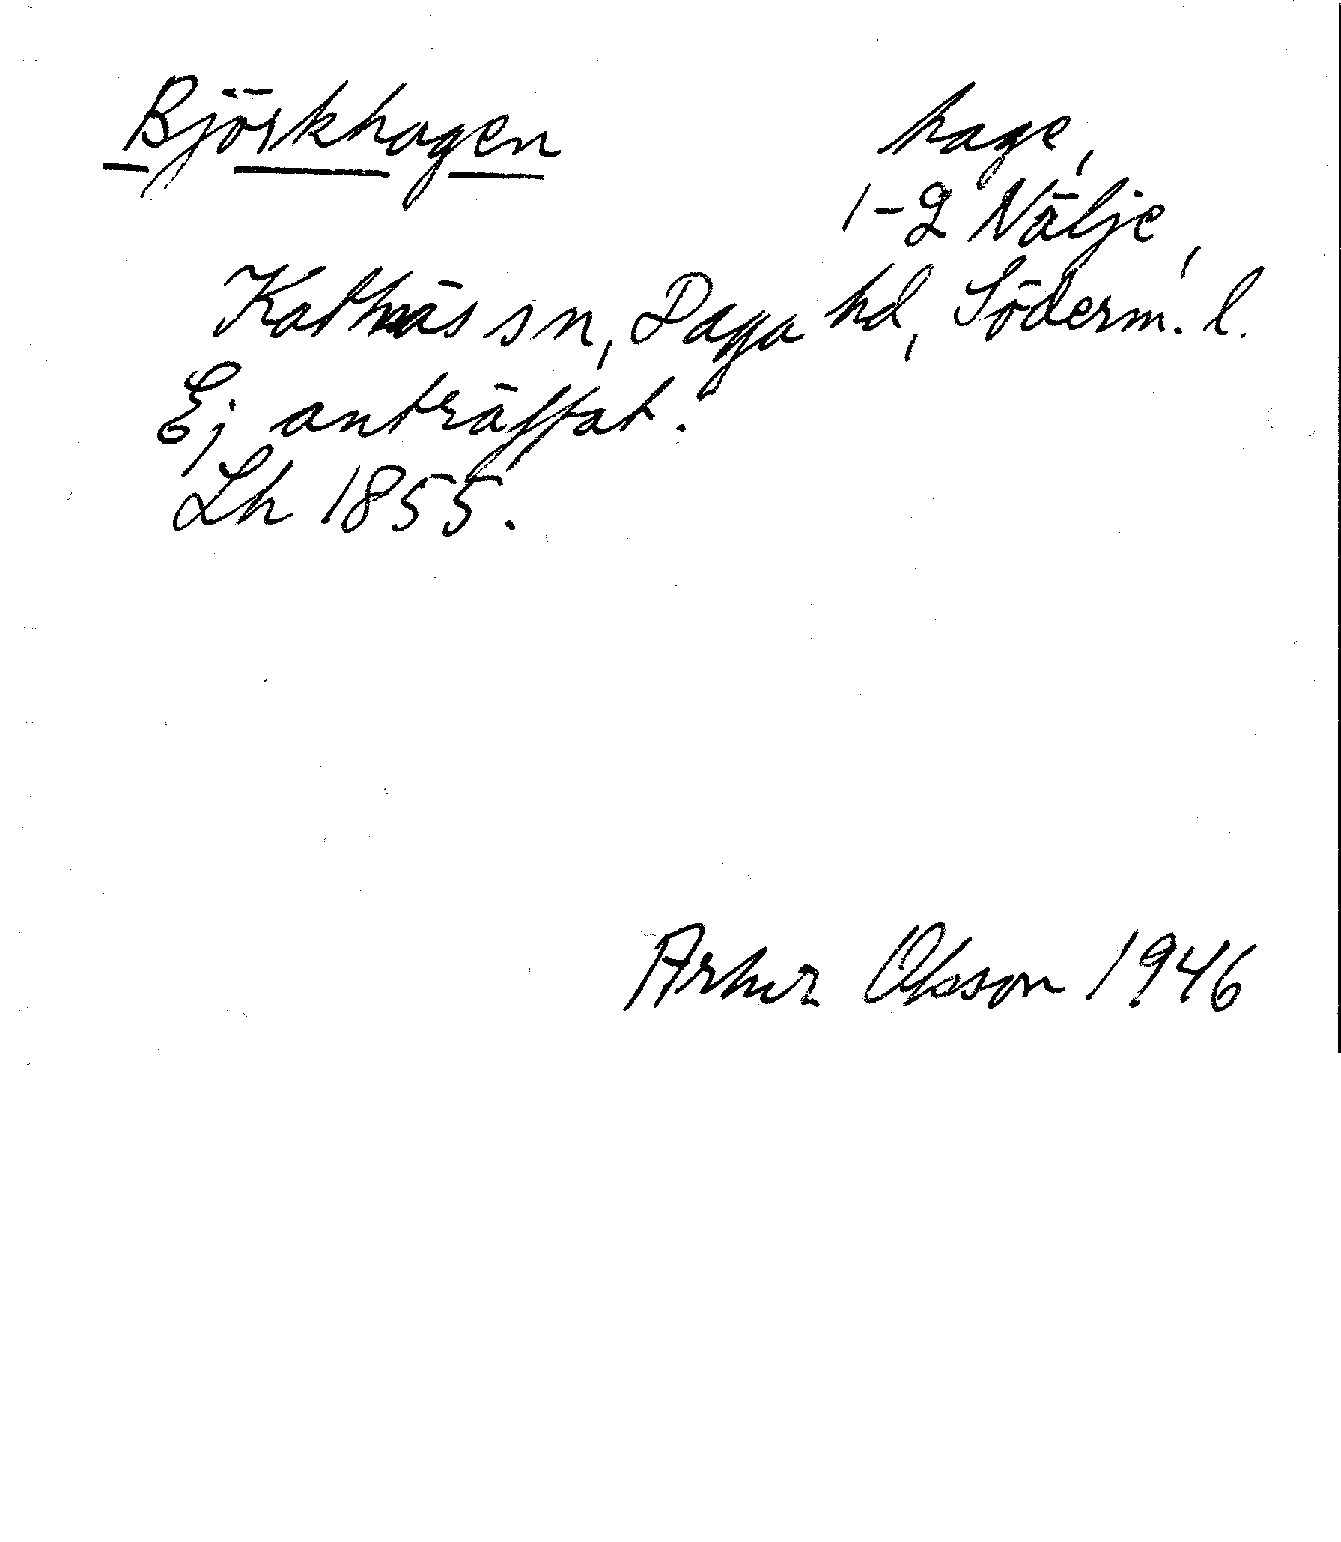 Björkhagen
hage,
1-2 Nälje,
Kattnäs sn, Daga hd, Söderm. l.
Ej anträffat.
Lh 1855.
Artur Olsson 1946